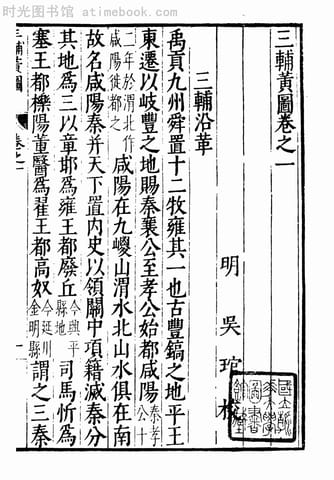 时光图书馆 atimebook.com
三輔黃圖卷之一
明 吳琯 校
三輔沿革
禹貢九州舜置十二牧雍其一也古豐鎬之地平王
東遷以岐豐之地賜秦襄公至孝公始都咸陽秦孝公十
二年於渭北作咸陽徙都之咸陽在九嵕山渭水北山水俱在南
故名咸陽秦并天下置内史以領關中項籍滅秦分
其地爲三以章邯爲雍王都廢丘今興平縣地司馬忻爲
塞王都櫟陽董翳爲翟王都高奴今延川金明縣謂之三秦
三輔黃圖 卷之一 一